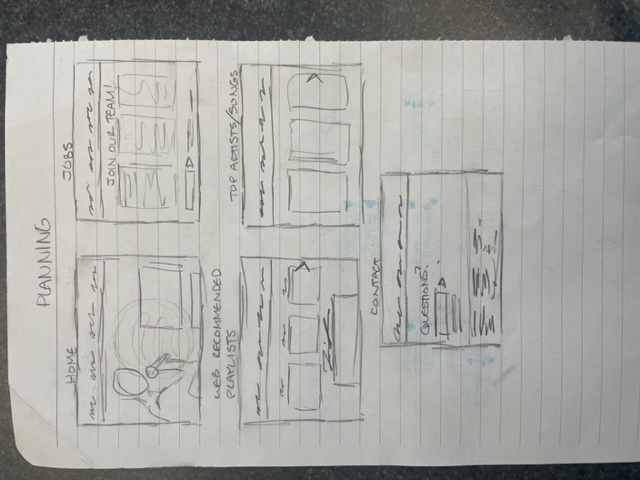 PLANNING
HOME
JOBS
JOIN OUR TEAM!
WEB RECOMMENDED
PLAYLISTS
TOP ARTISTS/SONGS
CONTACT
QUESTIONS?